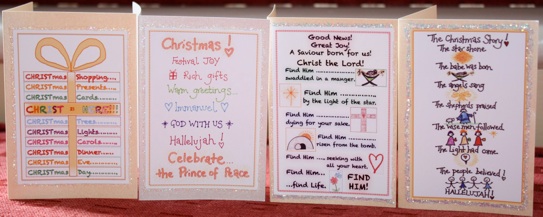 CHRISTmas Shopping....
CHRISTmas Presents....
CHRISTmas Cards....
CHRIST is HERE!!!
CHRISTmas Trees....
CHRISTmas Lights....
CHRISTmas Carols....
CHRISTmas Dinner....
CHRISTmas Eve....
CHRISTmas Day....
Christmas!
Festival Joy
Rich gifts
Warm greetings...
Immanuel
GOD WITH US
Hallelujah!
Celebrate...
the Prince of Peace
Good News!
Great Joy!
A Saviour born for us!
Christ the Lord!
Find Him ............
swaddled in a manger.
Find Him ............
by the light of the star.
Find Him ............
dying for your sake.
Find Him ............
risen from the tomb.
Find Him .... seeking with
all your heart.
Find Him...
...find Life.
FIND
HIM!
The Christmas Story!
The star shone
The babe was born
The angels sang
The shepherds praised
The wise men followed
The Light had come
The people believed!
HALLELUJAH!